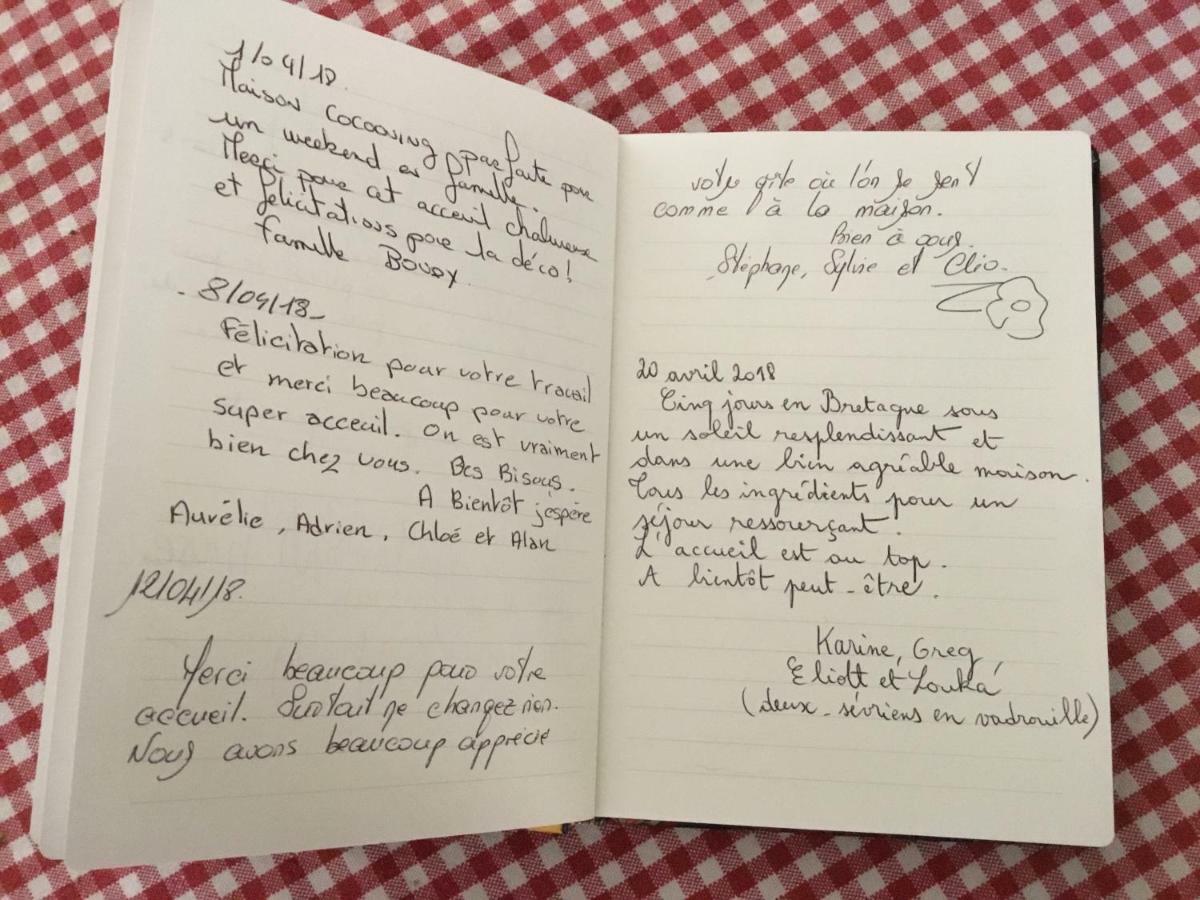 1/04/18.
Maison cocooning parfaite pour
un weekend en famille.
Merci pour cet acceuil chaleureux
et félicitations pour la déco!
famille Boury.
8/04/18_
Félicitation pour votre travail
et merci beaucoup pour votre
super acceuil. On est vraiment
bien chez vous. Des Bisous.
A Bientôt j'espère
Aurélie, Adrien, Chloé et Alan
12/04/18.
Merci beaucoup pour votre
accueil. Surtout ne changez rien.
Nous avons beaucoup apprécié
votre gîte où l'on se sent
comme à la maison.
Bien à vous.
Stéphane, Sylvie et Cléo.
20 avril 2018
Cinq jours en Bretagne sous
un soleil resplendissant et
dans une bien agréable maison.
Tous les ingrédients pour un
séjour ressourçant.
L'accueil est au top.
A bientôt peut-être.
Karine, Greg,
Eliott et Louka
(deux-sévriens en vadrouille)